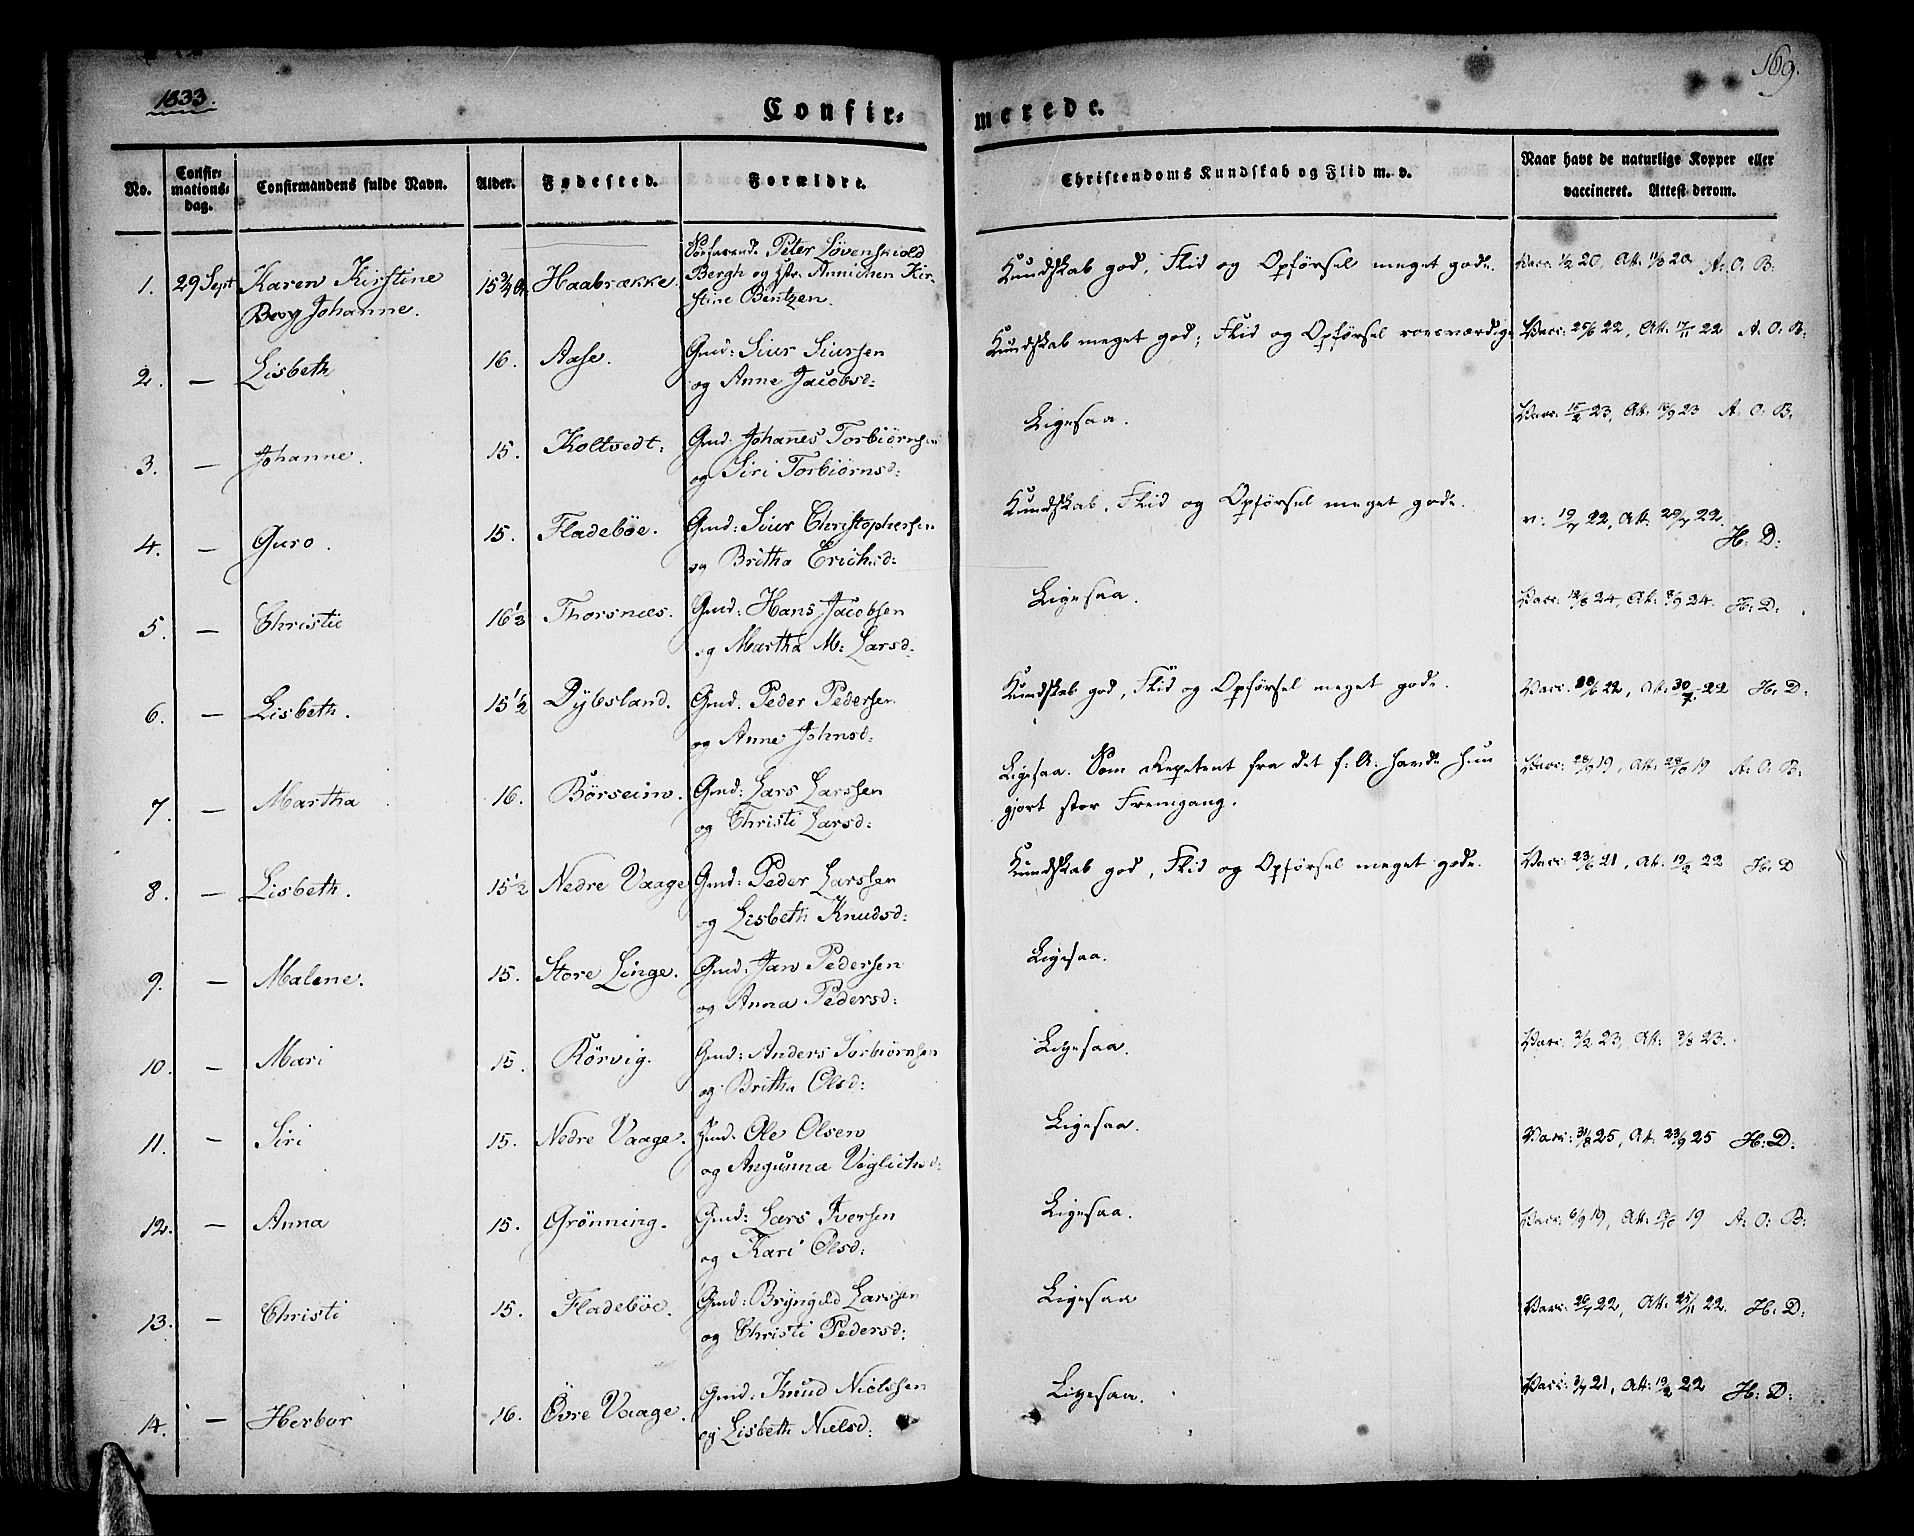 1833.
169.
Confir=
merede.
No.
Confir-
mations-
dag.
Confirmandens fulde Navn.
Alder.
Fødested.
Forældre.
Christendoms Kundskab og Flid m. v.
Naar havt de naturlige Kopper eller
vaccineret. Attest derom.
1. 29 Sept Karen Kirstine 15 3/4 Haabrække. Peter Løvenskiold
Bergh og Annichen Kir-
Johanne. stine Bentzen.
Kundskab god, Flid og Opførsel meget gode. Vacc: 20, Att: 20 A: O: B:
2. — Lisbeth 16. Aase. Gmd: Siur Siursen
og Anne Jacobsd:
Kundskab meget god; Flid og Opførsel roesværdige Vacc: 25/6 22, Att: 17/11 22 A: O: B:
3. — Johanne. 15. Koltvedt. Gmd. Johanes Torbiörnsen
og Siri Torbiörnsd:
Ligesaa. Vacc: 23, Att: 23 A: O: B:
4. — Guro. 15. Fladeböe. Gmd: Siur Christophersen
og Britha Erichsd:
Kundskab, Flid og Opførsel meget gode. v: 19/7 22, Att: 29/7 22.
H: D:
5. — Christie 16 1/2 Thorsnæs. Gmd: Hans Jacobsen
og Martha M: Larsd.
Ligesaa. Vacc: 24, Att: 24. H: D:
6. — Lisbeth. 15 1/2 Dybsland. Gmd. Peder Pedersen
og Anne Johnsd:
Kundskab god, Flid og Opførsel meget gode. Vacc. 22, Att: 30/7 22 H: D:
7. — Martha 16. Börseim. Gmd: Lars Larssen
og Christi Larsd:
Ligesaa. Som Repetent fra det f: A: havde hun Vacc: 19, Att: 19 A: O: B:
gjort stor Fremgang.
8. — Lisbeth. 15 1/2 Nedre Vaage Gmd: Peder Larssen
og Lisbeth Knudsd:
Kundskab god, Flid og Opførsel meget gode. Vacc: 23/6 21, Att: 19/2 22 H: D
9. — Malene. 15. Store Linge. Gmd: Jan Pedersen
og Anna Pedersd:
Ligesaa.
10. — Mari 15. Rörvig. Gmd: Anders Torbiörnsen
og Britha Olsd:
Ligesaa. Vacc: 3/2 23, Att: 3/8 23.
11. — Siri 15. Nedre Vaage. Gmd. Ole Olsen
og Angunna
Ligesaa. Vacc: 31/8 25, Att: 23/9 25 H: D:
12. — Anna 15. Grönning. Gmd: Lars Iversen
og Kari Olsd:
Ligesaa. Vacc: 6/9 19, Att: 19 A: O: B:
13. — Christi 15. Fladeböe. Gmd: Bryngeld Larssen
og Christi Pedersd:
Ligesaa Vacc: 22, Att: 25/11 22. H: D:
14. — Herbor 16. Övre Vaage. Gmd: Knud Nielssen
og Lisbeth Nielsd:
Ligesaa. Vacc: 3/7 21, Att: 19/2 22 H: D: